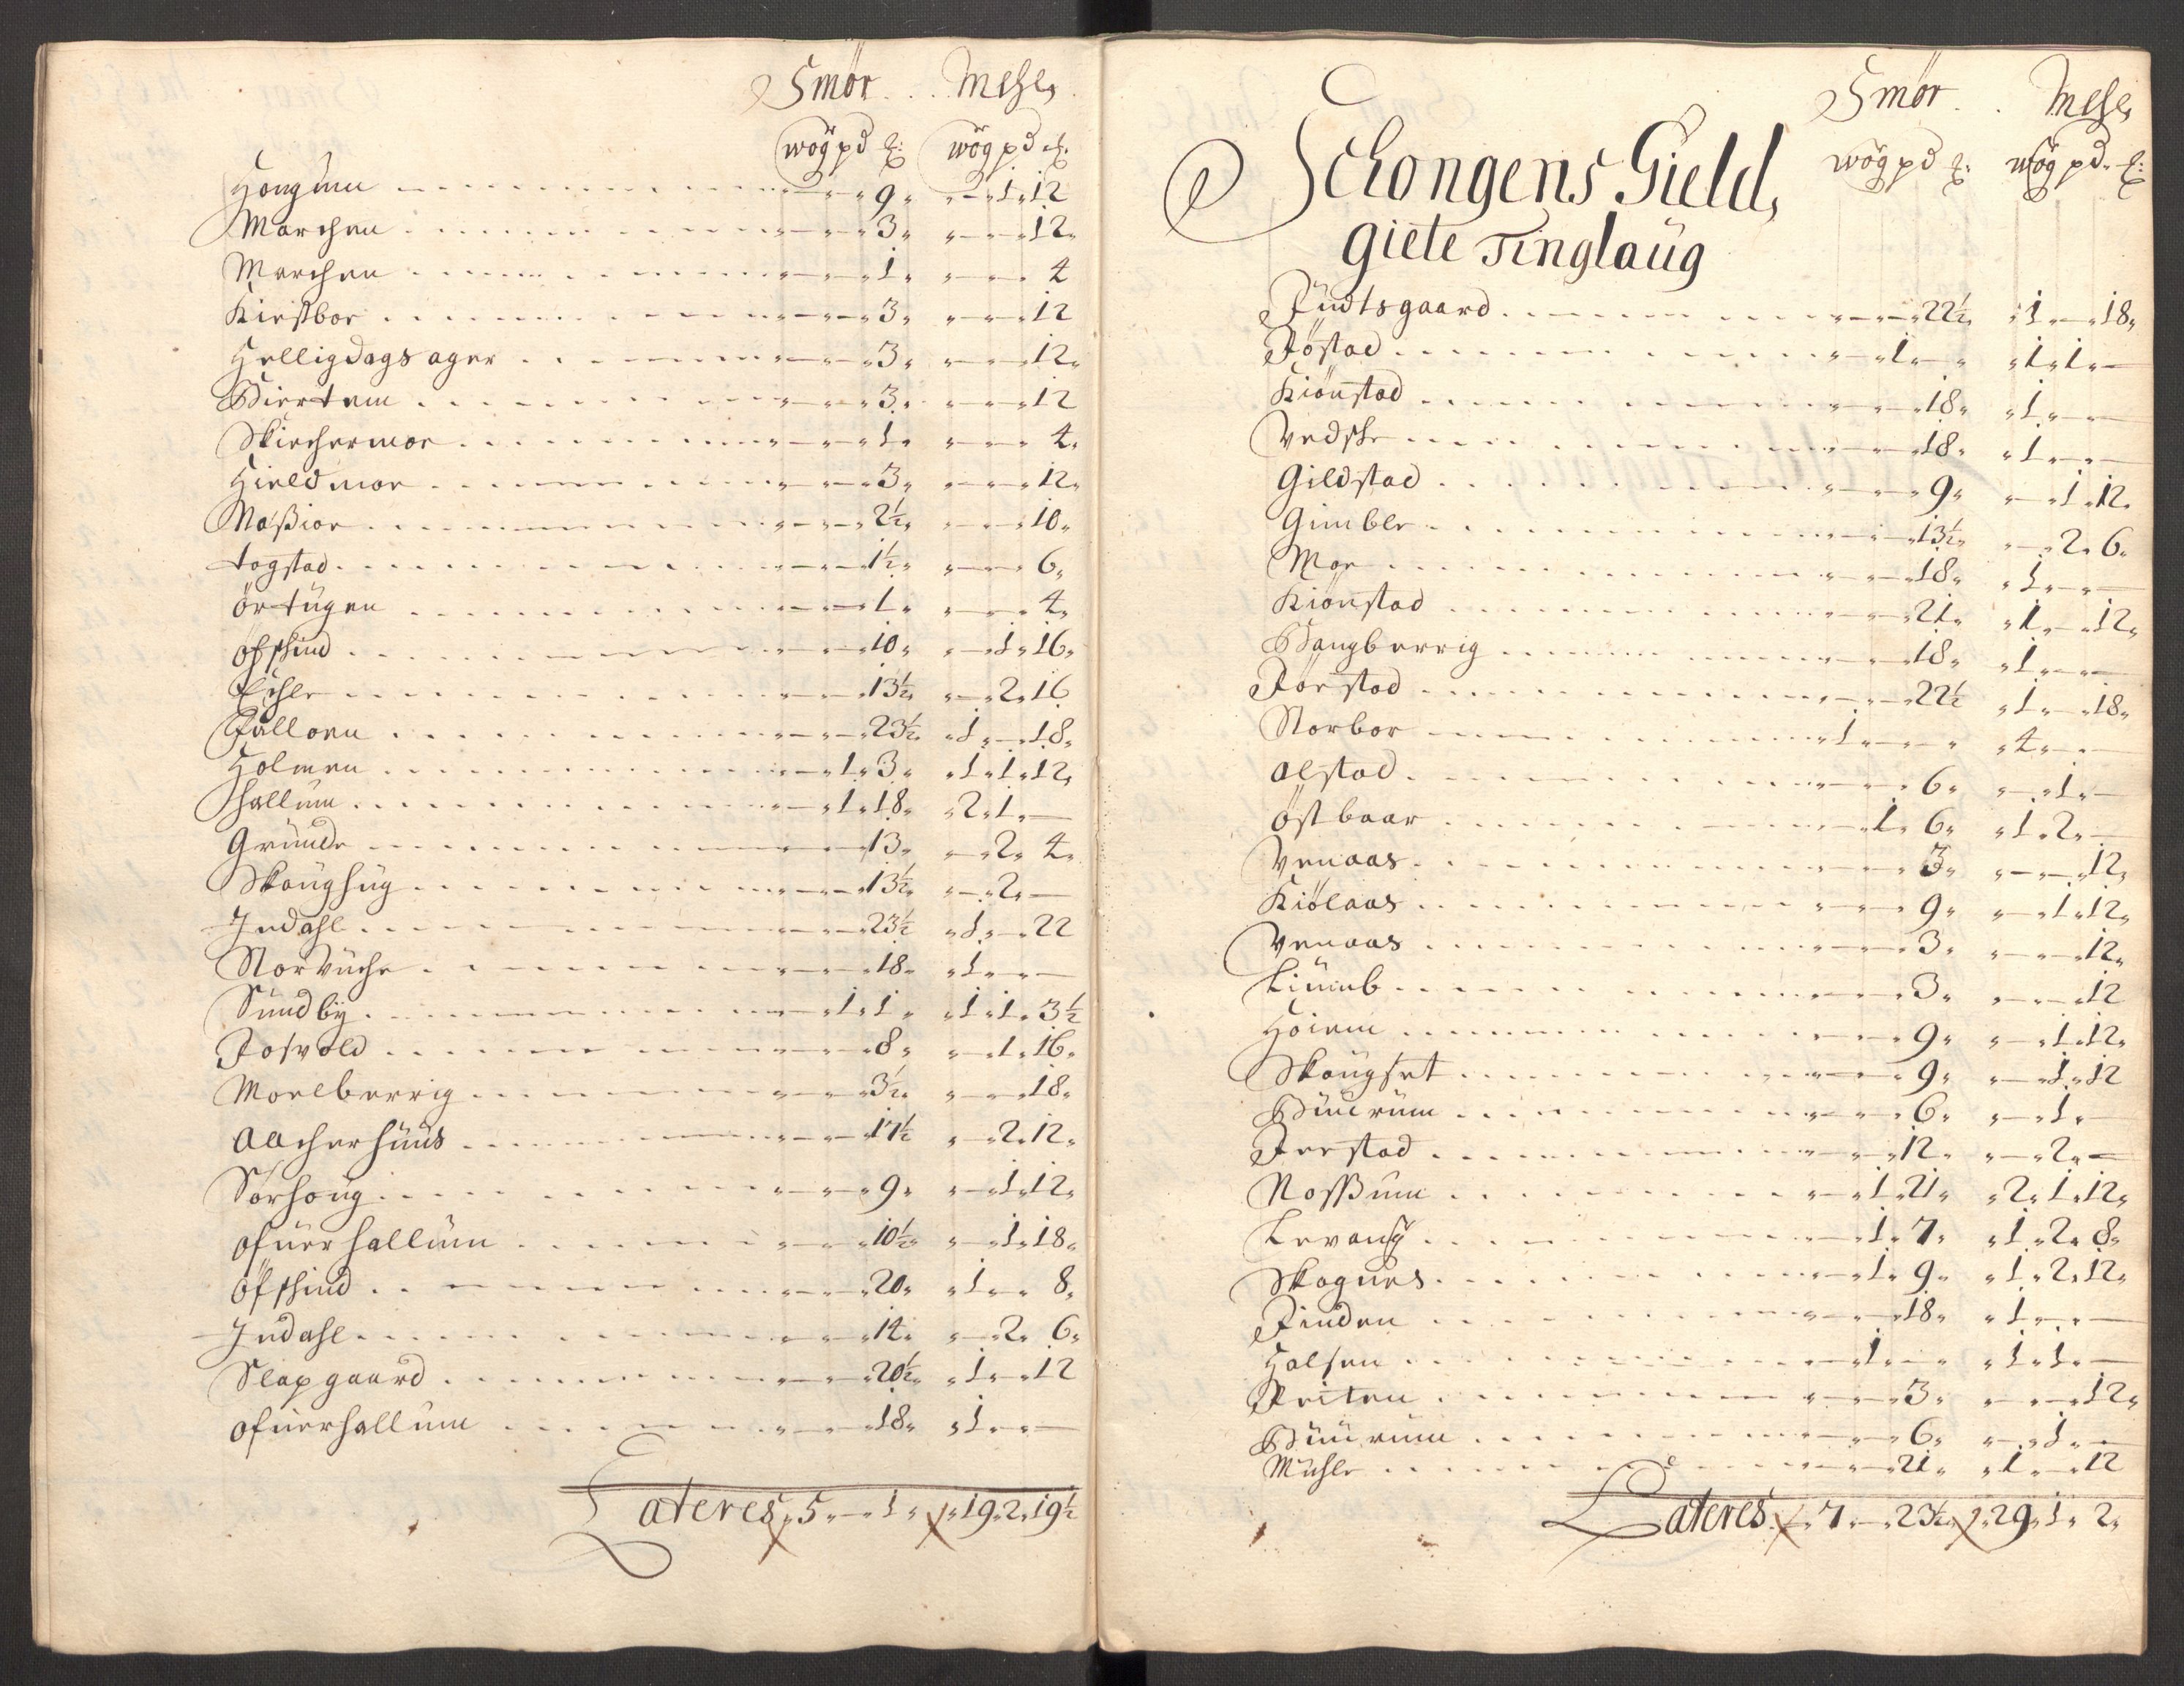 Smør . . Mehl,
wog pd £: wog pd £.
Hougum - - - 9, - 1, 12
Marchen - - - 3, - - 12,
Marchen - - - 1, - - 4
Kirstbor - - - 3, - - 12
Helligdags ager - - - 3, - - 12,
Biertnem - - - 3, - - 12
Skiechermoe - - - 1, - - 4,
Hieldmoe - - - 3, - - 12,
Maßior - - - 2½, - - 10,
togstad - - - 1½, - - 6,
örtugen - - - 1, - - 4,
öfshind - - - 10, - 1, 16,
Echle - - - 13½, - 2, 16
Fulloen - - - 23½, 1, - 18,
Holmen - - 1, 3, 1, 1, 12,
hallum - - 1, 18, 2, 1, -
Grunde - - - 13, - 2, 4,
Skoughug - - - 13½, - 2, -
Indahl - - - 23½ 1, - 22
Storvuche - - - 18, 1, - -
Sundby - - 1, 1, 1, 1, 3½
Rosvold - - - 8, - 1, 16,
Moelberrig - - - 3½, - - 18,
Aacherhuus - - - 17½ - 2, 12,
Sørhoug - - - 9, - 1, 12,
ofuerhallum - - - 10½, - 1, 18,
öfshind - - - 20, 1, - 8,
Indahl - - - 14, - 2, 6,
Slapgaard - - - 20½, 1, - 12
ofuerhallum - - - 18, 1, - -
Lateres, 5, - 1, 19, 2, 19½
Smør . . Mehl,
wog pd £: wog pd. £:
Schongens Gield,
giete Tinglaug
Rudtsgaard - - - 22½, 1, - 18,
Røstad - - 1, - 1, 1, -
Kiønstad - - - 18, 1, - -
Vedsle - - - 18, 1, - -
Gildstad - - - 9, - 1, 12,
Gimble - - - 13½, - 2, 6,
Moe - - - 18, 1, - -
Kiønstad - - - 21, 1, - 12,
Bangberrig - - - 18, 1, - -
Rørstad - - - 22½ 1, - 18,
Norbor - - 1, - - 4, - -
alstad - - - 6, - 1, -
östbaar - - 1, 6, 1, 2, -
Venaas - - - 3, - - 12,
Kiölaas - - - 9, - 1, 12,
Venaas - - - 3, - - 12,
Liumb - - - 3, - - 12
Høiem - - - 9, - 1, 12,
Skougset - - - 9, - 1, 12
Buurum - - - 6, - 1, -
Ferstad - - - 12, - 2, -
Nossum - - 1, 21, 2, 1, 12,
Levang - - 1, 7, 1, 2, 8,
Skognes - - 1, 9, 1, 2, 12,
Rinden - - - 18, 1, - -
Halsen - - 1, - 1, 1, -
Reiten - - - 3, - - 12,
Buurum - - - 6, - 1, -
Muhle - - - 21, 1, - 12
Lateres, 7, - 23½, 29, 1, 2,